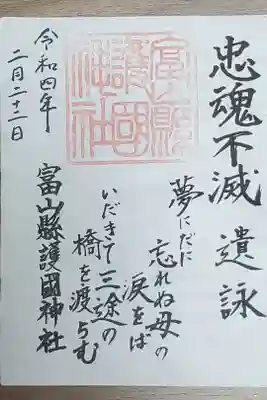 忠魂不滅 遺詠
夢にだに
忘れぬ母の
涙をば
いだきて三途の
橋を渡らむ
富山縣護國神社
令和四年
二月二十二日
富山縣護國神社